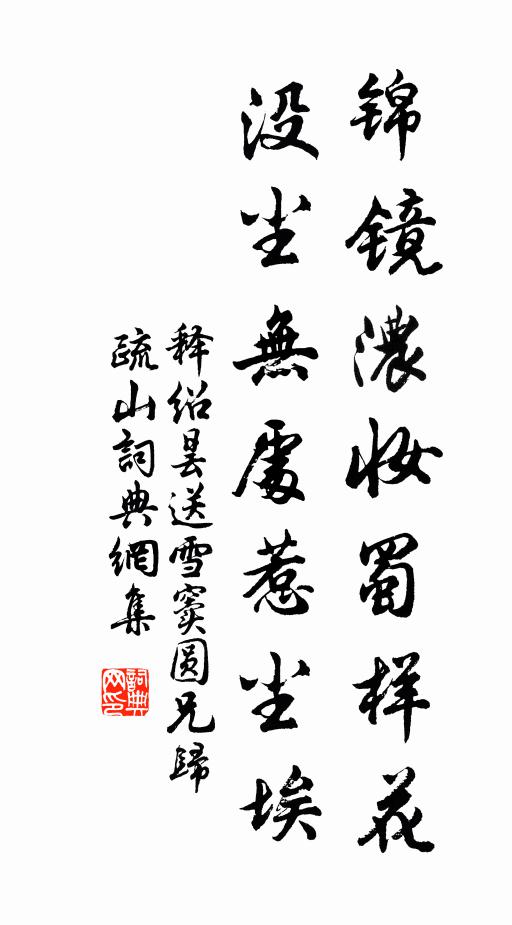 锦镜浓妆蜀样花
没尘無處惹尘埃
释绍昙送雪窦圆兄歸
疏山詞典網集
詞典网印